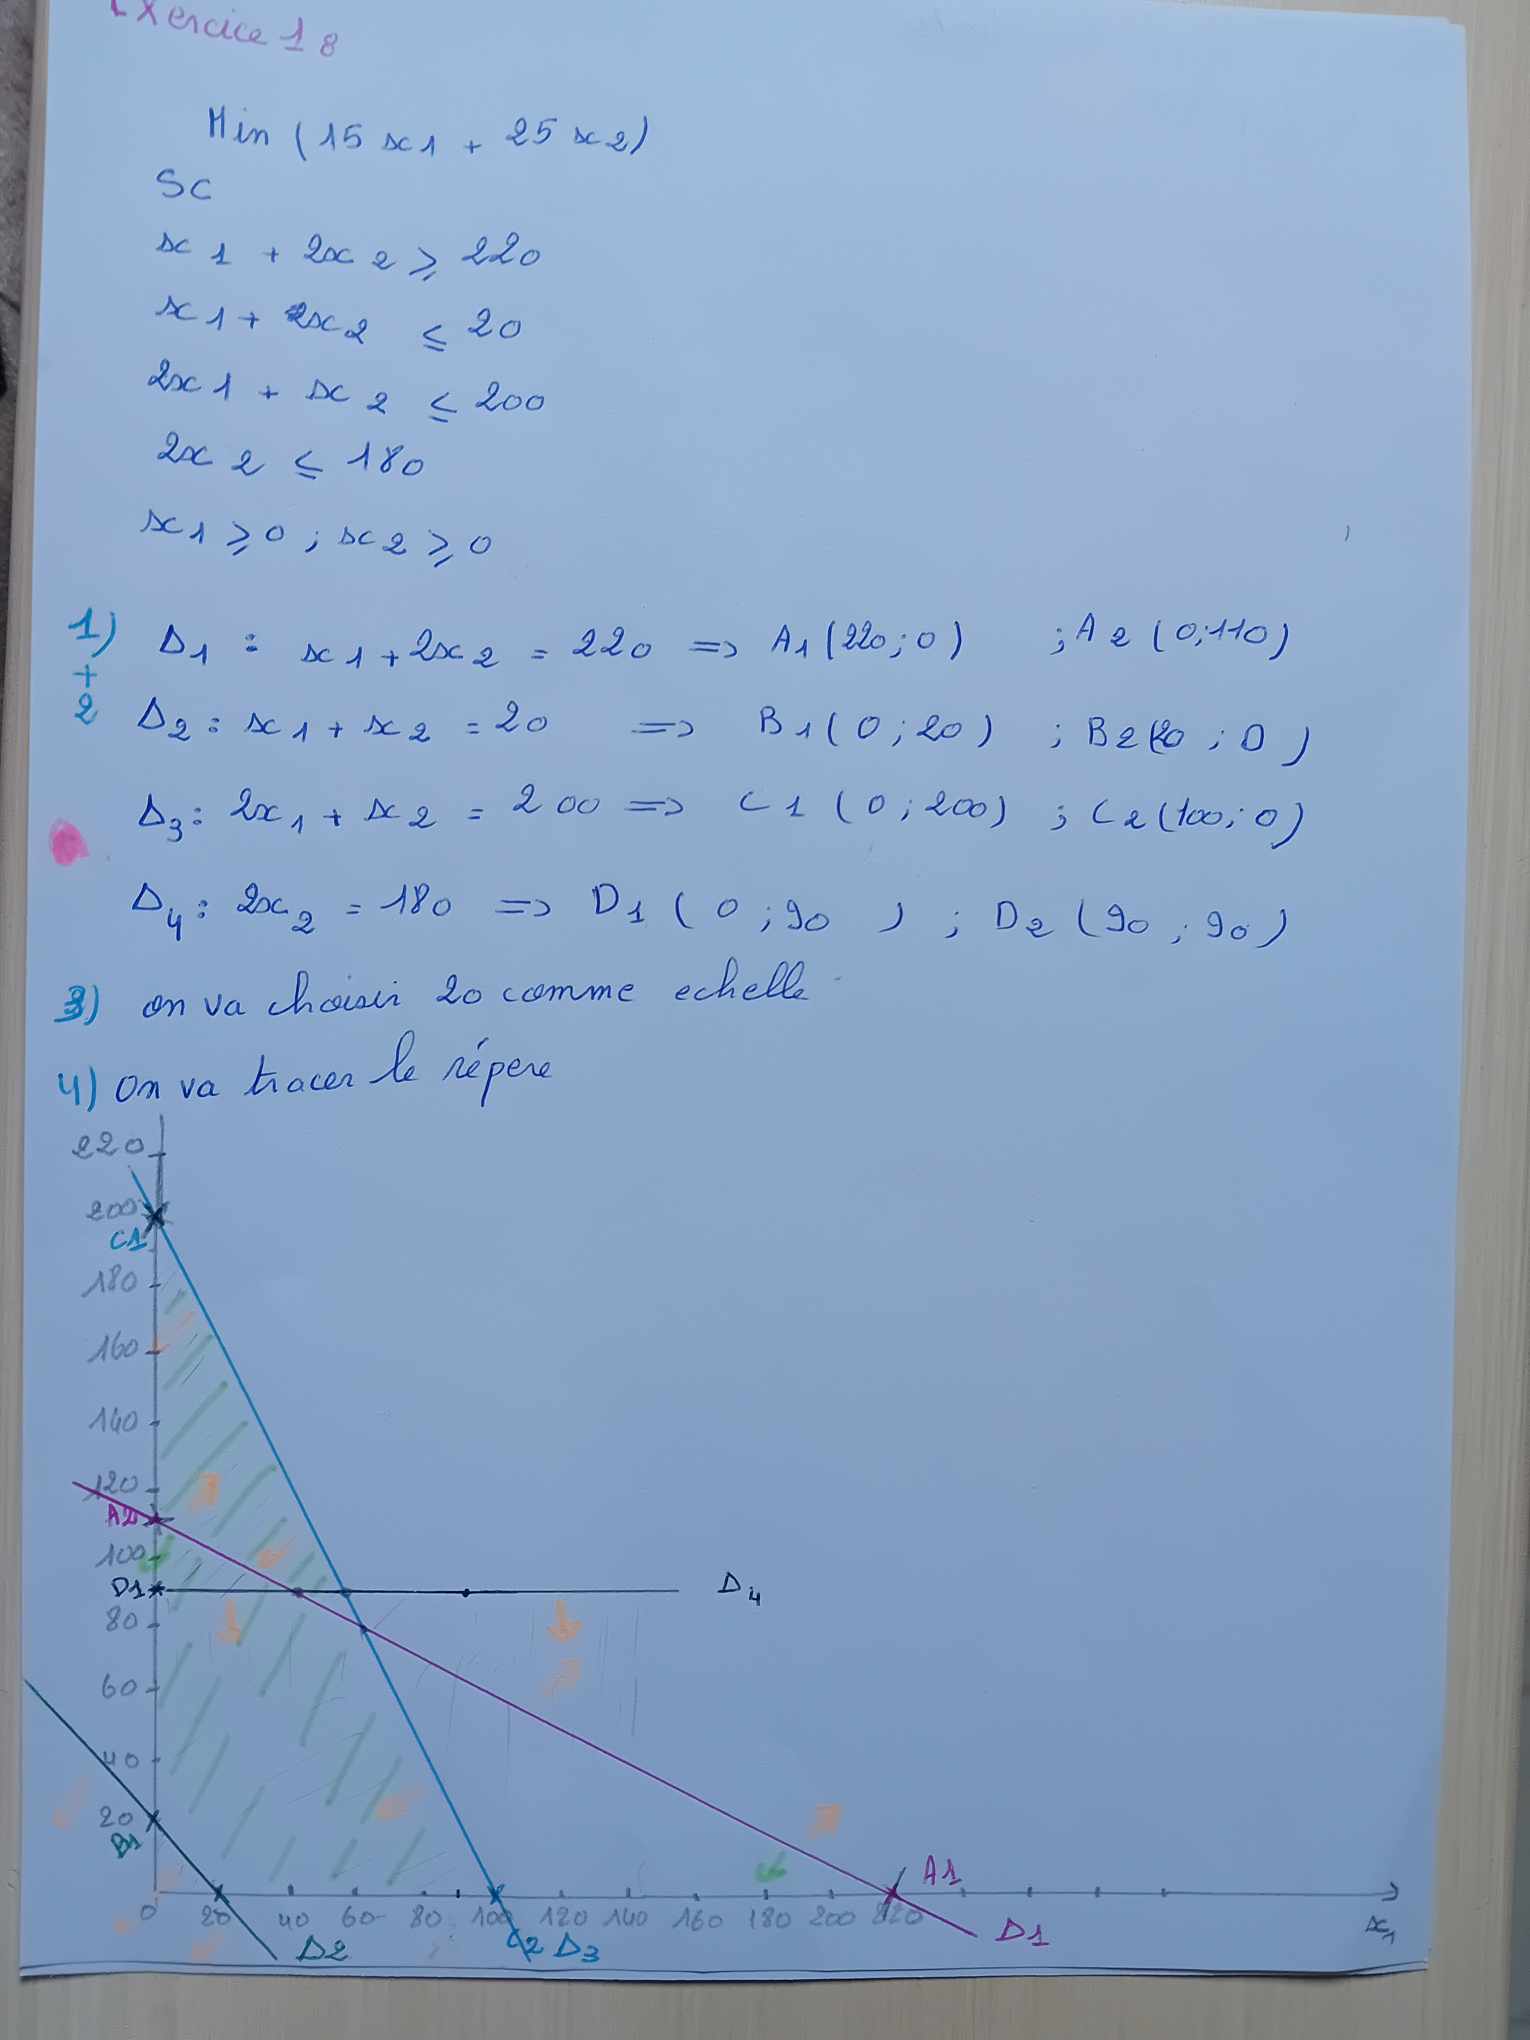 Exercice 18
Min (15x1 + 25x2)
SC
x1 + 2x2 ⩾ 220
x1 + 2x2 ⩽ 20
2x1 + x2 ⩽ 200
2x2 ⩽ 180
x1 ⩾ 0 ; x2 ⩾ 0
1) Δ1 : x1 + 2x2 = 220 => A1 (220 ; 0) ; A2 (0 ; 110)
+
2 Δ2 : x1 + x2 = 20 => B1 (0 ; 20) ; B2 (20 ; 0)
Δ3 : 2x1 + x2 = 200 => C1 (0 ; 200) ; C2 (100 ; 0)
Δ4 : 2x2 = 180 => D1 (0 ; 90) ; D2 (90 ; 90)
3) on va choisir 20 comme echelle
4) On va tracer le répere
220
200
C1
180
160
140
120
A2
100
D1 Δ4
80
60
40
20
B1
A1
0 20 40 60 80 100 120 140 160 180 200 220
x1
Δ2 C2 Δ3 Δ1